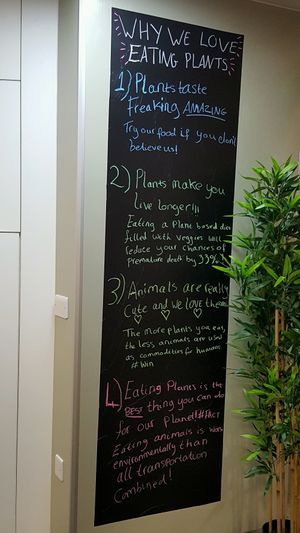 WHY WE LOVE
EATING PLANTS
1) Plants taste
Freaking AMAZING
Try our food if you don't
believe us!
2) Plants make you
live longer!!!
Eating a plant based diet
filled with veggies will
reduce your chances of
premature death by 33%!
3) Animals are really
cute and we love them
The more plants you eat,
the less animals are used
as commodities for humans.
#Win
4) Eating Plants is the
BEST thing you can do
for our planet! #FACT
Eating animals is worse
environmentally than
all transportation
combined!